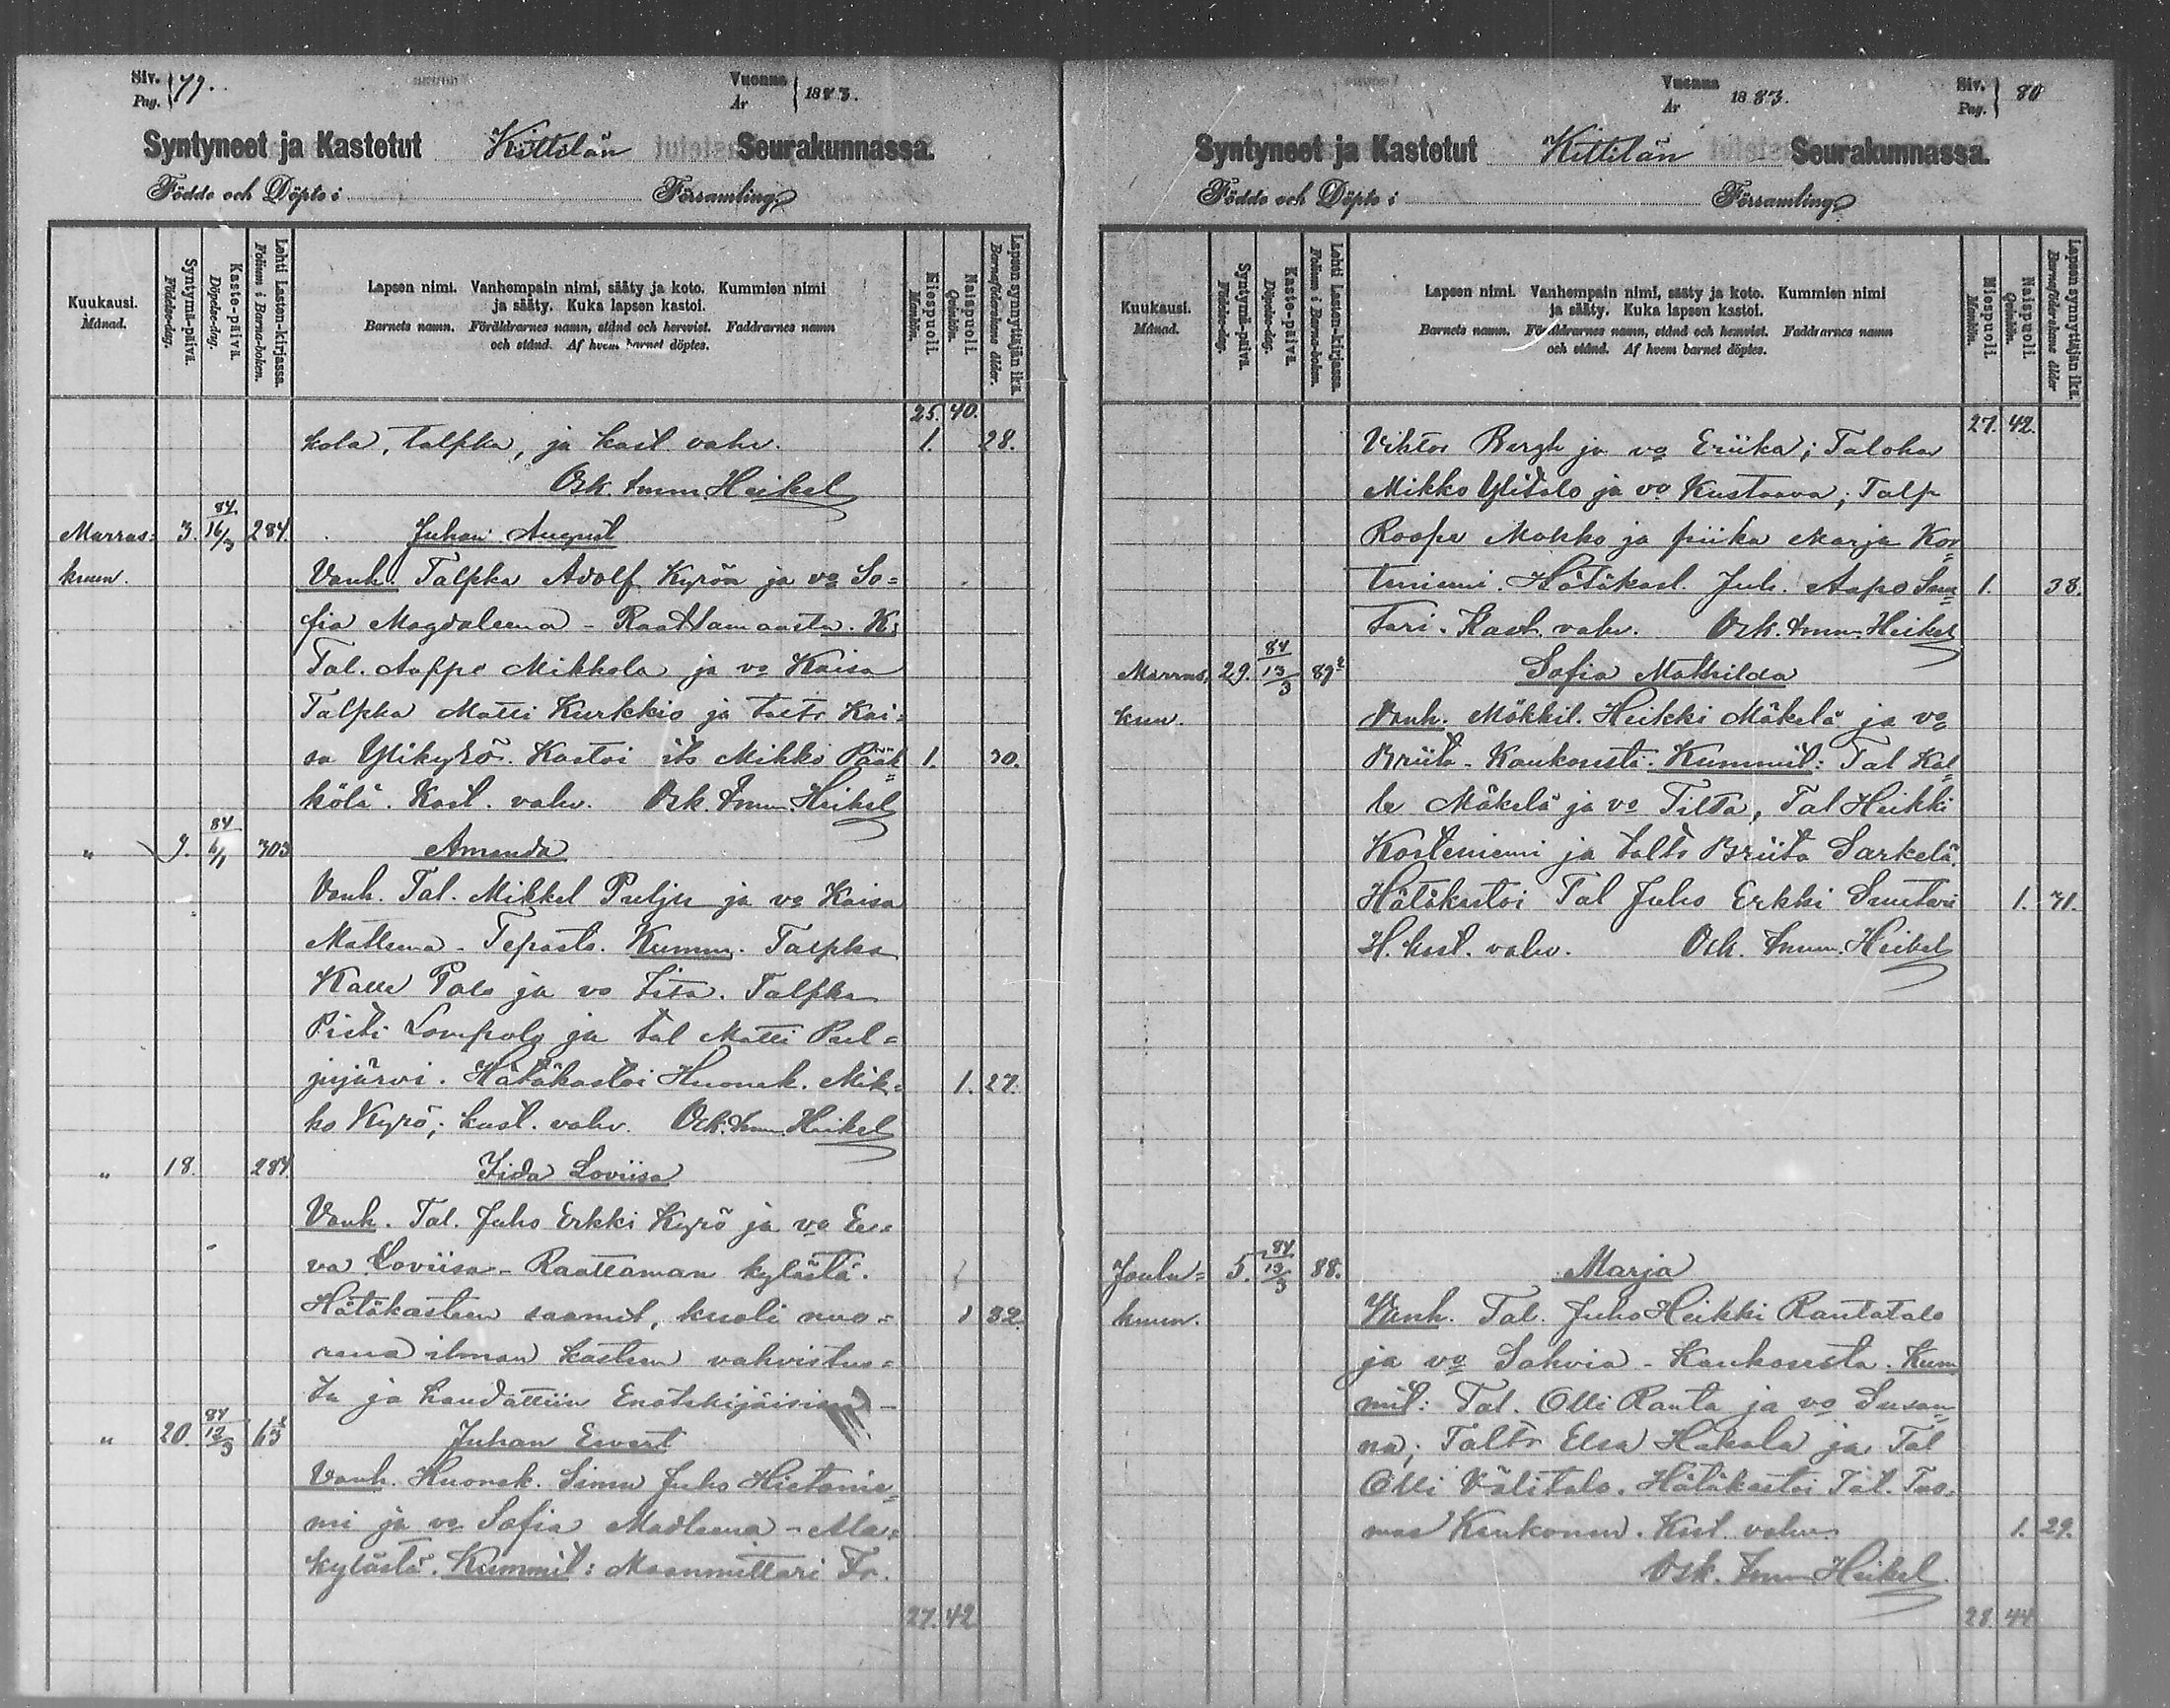 Siv. Pag. 79.
Vuonna År 1883.
Syntyneet ja Kastetut Kittilän Seurakunnassa.
Födde och Döpte i Församling
Kuukausi. Månad.
Syntymä-päivä. Födelse-dag.
Kaste-päivä. Döpelse-dag.
Lehti Lasten-kirjassa. Folium i Barna-boken.
Lapsen nimi. Vanhempain nimi, sääty ja koto. Kummien nimi
ja sääty. Kuka lapsen kastoi.
Barnets namn. Föräldrarnes namn, stånd och hemvist. Faddrarnes namn
och stånd. Af hvem barnet döptes.
Miespuoli. Mankön.
Naispuoli. Qvinkön.
Lapsen synnyttäjän ikä. Barnaföderskans ålder.
25. 40.
kola, talpka, ja kast. vahv. 1. 28.
Osk. Imm. Heikel
Marras= 3. 84 16/3 284. Juhan August
kuun. Vanh. Talpka Adolf Kyrön ja vo So=
fia Magdaleena - Raattamaasta. K:
Tal. Aappo Mikkola ja vo Kaisa
Talpka Matti Kurkkio ja taltr Kai=
sa Ylikyrö. Kastoi its Mikko Pääk= 1. 30.
kölä. Kast. vahv. Osk. Imm. Heikel
" 9. 84 6/1 303 Amanda
Vanh. Tal. Mikkel Puljun ja vo Kaisa
Matleena - Tepasto. Kumm. Talpka
Kalle Palo ja vo Iita. Talpka
Pieti Lompolo ja tal Matti Pul=
jujärvi. Hätäkastoi Huonek. Mik= 1. 27.
ko Kyrö; kast. vahv. Osk. Imm. Heikel
" 18. 284. Iida Loviisa
Vanh. Tal. Juho Erkki Kyrö ja vo Ee=
va Loviisa - Raattaman kylästä.
Hätäkasteen saanut, kuoli nuo= 1 32.
rena ilman kasteen vahvistus=
ta ja haudattiin Enotekijäisiin -
" 20. 84 13/3 63 Juhan Ewert
Vanh. Huonek. Simu Juho Hietanie=
mi ja vo Sofia Madleena - Ala=
kylästä. Kummit: Maanmittari Fr.
27. 42
Vuonna År 1883.
Siv. Pag. 80
Syntyneet ja Kastetut Kittilän Seurakunnassa.
Födde och Döpte i Församling
Kuukausi. Månad.
Syntymä-päivä. Födelse-dag.
Kaste-päivä. Döpelse-dag.
Lehti Lasten-kirjassa. Folium i Barna-boken.
Lapsen nimi. Vanhempain nimi, sääty ja koto. Kummien nimi
ja sääty. Kuka lapsen kastoi.
Barnets namn. Föräldrarnes namn, stånd och hemvist. Faddrarnes namn
och stånd. Af hvem barnet döptes.
Miespuoli. Mankön.
Naispuoli. Qvinkön.
Lapsen synnyttäjän ikä. Barnaföderskans ålder
27. 42.
Viktor Bergh ja vo Eriika; Taloka
Mikko Ylitalo ja vo Kustaava; Talp
Roope Mokko ja piika Marja Kor=
teniemi. Hätäkast. Juh. Aapo Sun= 1. 38.
tari. Kast. vahv. Osk. Imm. Heikel
Marras, 29. 84 13/3 89 Sofia Mathilda
kuun. Vanh. Mökkil. Heikki Mäkelä ja vo
Briita - Kaukosesta. Kummit: Tal Kal=
le Mäkelä ja vo Tilta, Tal Heikki
Kosteniemi ja taltr Briita Sarkelä.
Hätäkastoi Tal Juho Erkki Suntari 1. 31.
H. kast. vahv. Osk. Imm. Heikel
Joulu= 5. 84 13/3 88. Marja
kuun. Vanh. Tal. Juho Heikki Rantatalo
ja vo Sohvia - Kaukosesta. Kum
mit: Tal. Olli Ranta ja vo Susan=
na; Taltr Elsa Hakala ja Tal
Olli Välitalo. Hätäkastoi Tal. Tuo=
mas Kaukonen. Kast. vahv. 1. 29.
Osk. Imm. Heikel.
28. 44